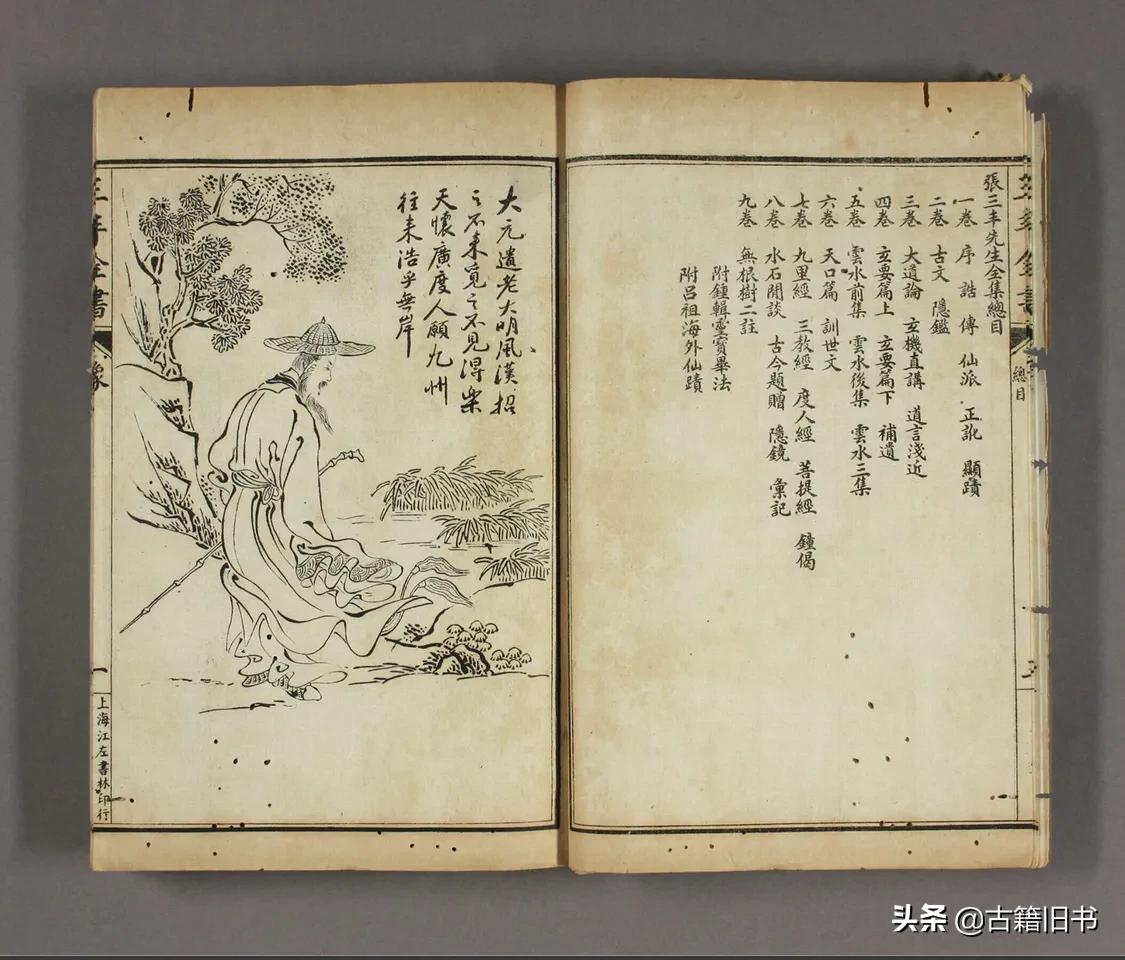 張三丰先生全集總目
一卷 序 誥 傳 仙派 正訛 顯蹟
二卷 古文 隱鑑
三卷 大道論 玄機直講 道言淺近
四卷 玄要篇上 玄要篇下 補遺
五卷 雲水前集 雲水後集 雲水三集
六卷 天口篇 訓世文
七卷 九里經 三教經 度人經 菩提經 鐘偈
八卷 水石閒談 古今題贈 隱鏡 彙記
九卷 無根樹二註
附鍾輯靈寶畢法
附呂祖海外仙蹟
總目
大元遺老大明風漢招
之不来覓之不見得樂
天懷廣度人願九州
往来浩乎無岸
三丰全書
像
一
上海江左書林印行
头条 @古籍旧书